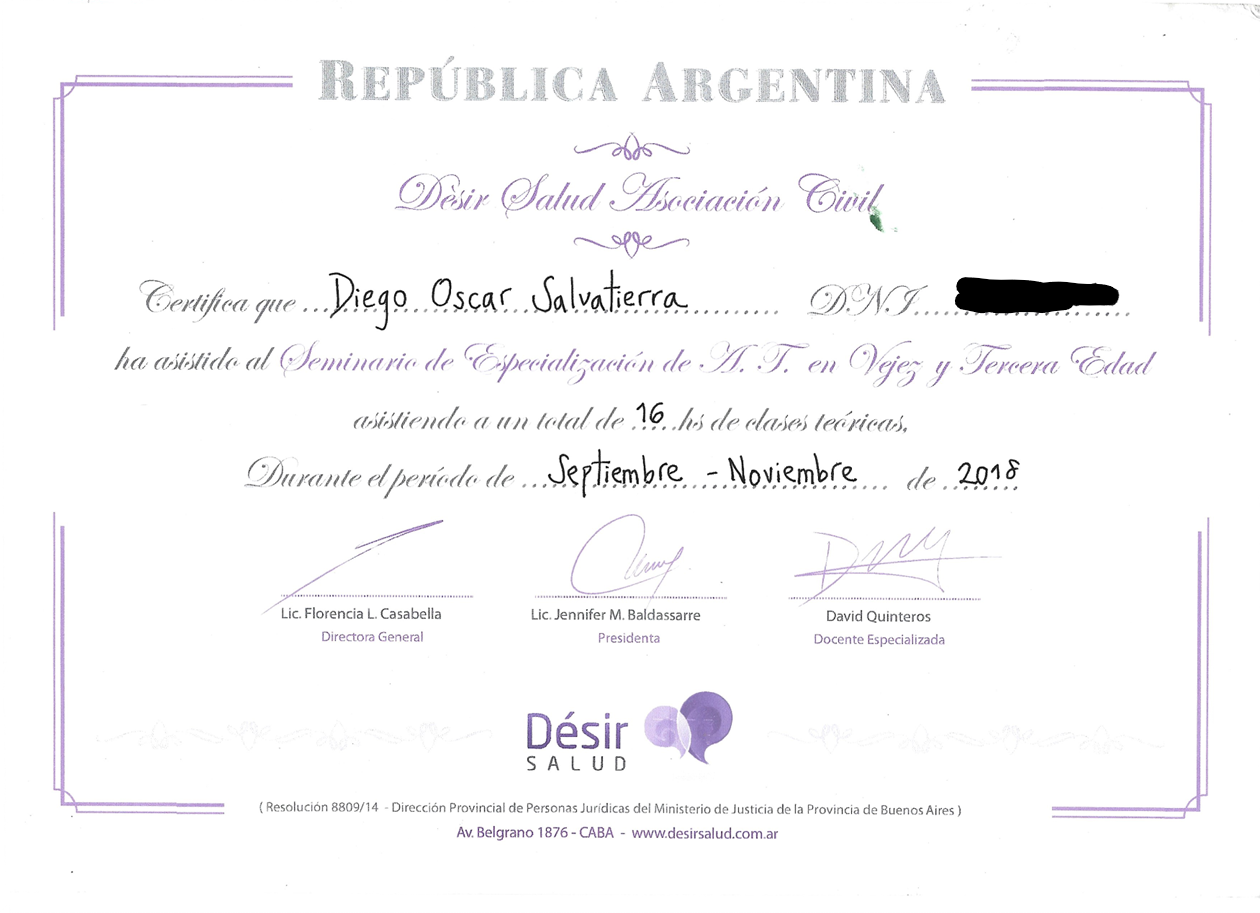 REPÚBLICA ARGENTINA
Dèsir Salud Asociación Civil
Certifica que ... Diego Oscar Salvatierra ........... D.N.I. ...........
ha asistido al Seminario de Especialización de A. T. en Vejez y Tercera Edad
asistiendo a un total de .16...hs de clases teóricas,
Durante el período de ... Septiembre - Noviembre .... de .2018.
Lic. Florencia L. Casabella
Directora General
Lic. Jennifer M. Baldassarre
Presidenta
David Quinteros
Docente Especializada
Désir
SALUD
( Resolución 8809/14 - Dirección Provincial de Personas Jurídicas del Ministerio de Justicia de la Provincia de Buenos Aires )
Av. Belgrano 1876 - CABA - www.desirsalud.com.ar